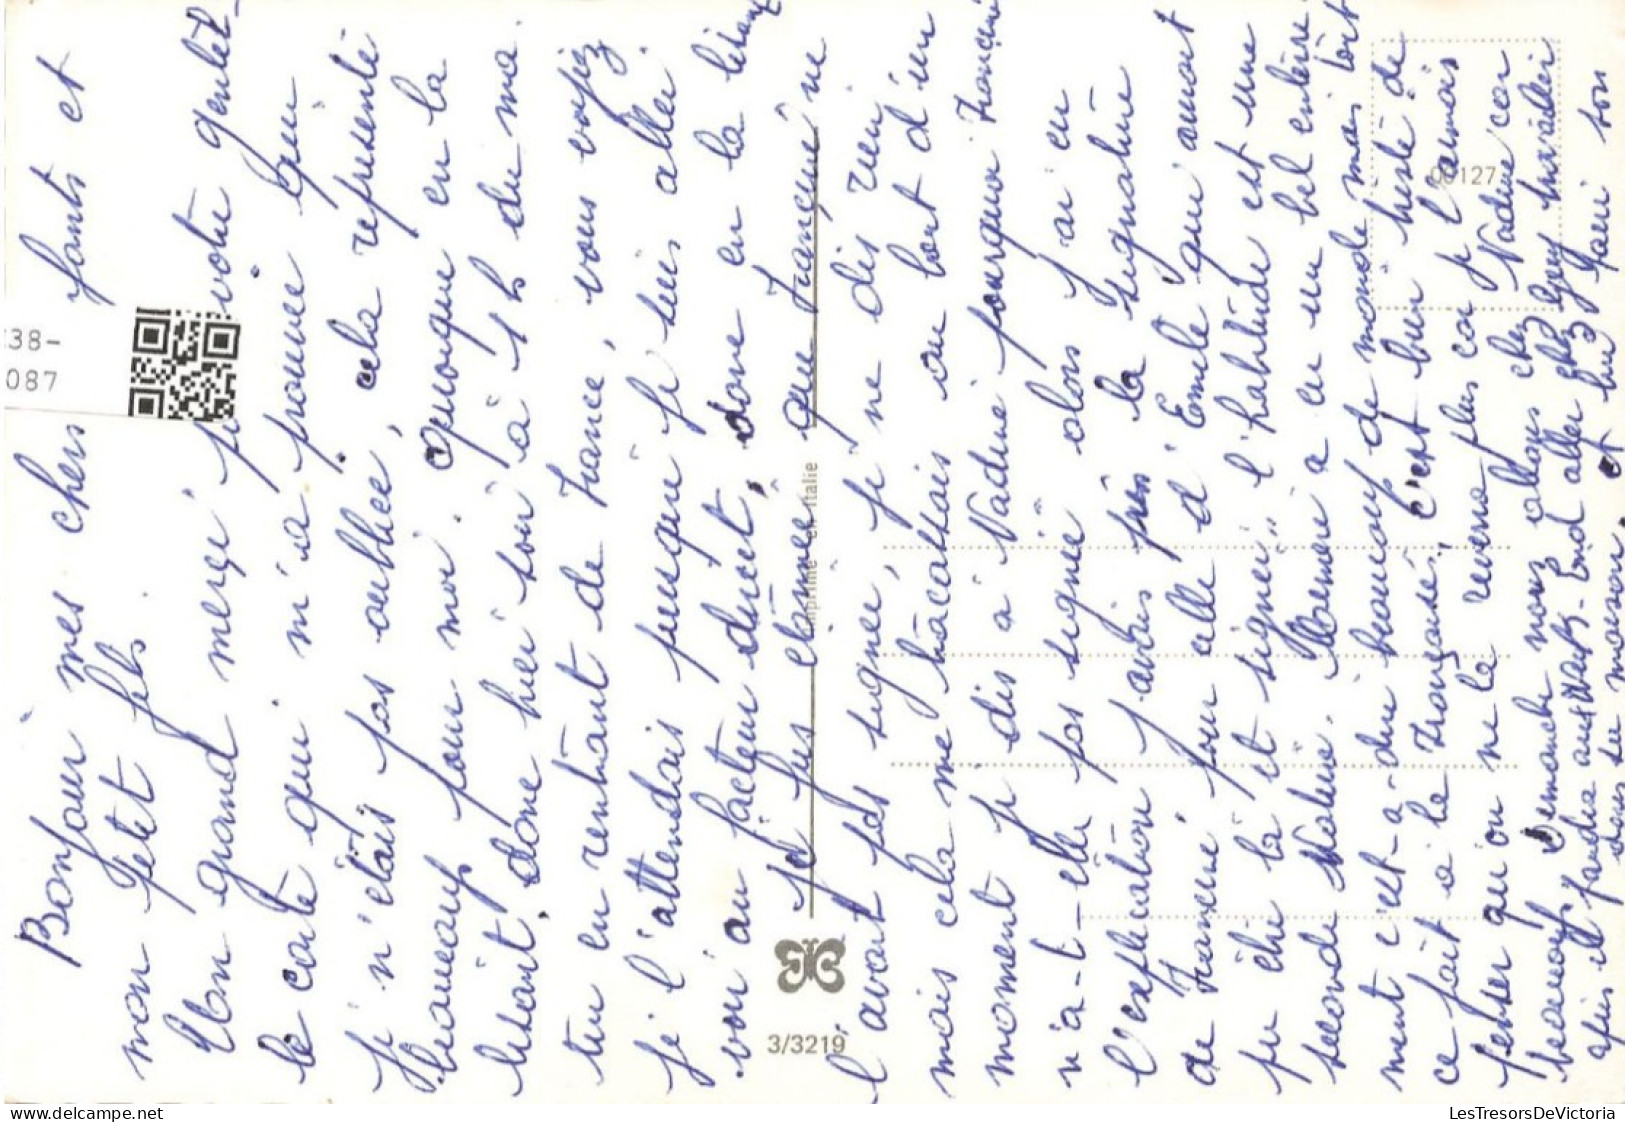 Bonjour mes chers fants et
mon Petit fils.
Un grand merçi, pour votre gentet-
te carte qui m'a prouvé que
je n'étais pas oubliée, cela représenté
beaucoup pour moi. quoique en la
lisant, donc hier soir à 1 h du ma.
tin en rentrant de France, vous voyez
je l'attendais puisque je suis allé
voir au facteur ducet, donc en la lisant
je fus étonné que Francine ne
l'avait pas signé, je ne dis rien
mais cela me tracattais au bout d'un
moment je dis à Nadine pourquoi Francine
n'a-t-elle pas signée alors j'ai eu
l'explication j'avais pris la signature
de Francine pour celle d'Emile qui avait
pu être là et signer, l'habitude est une
seconde nature. Mémère a eu un bel enterre-
ment c'est-à-dire beaucoup de monde mais tout
ce fait à la Française, c'est bien triste de
penser qu'on ne la reverra plus car je l'aimais
beaucoup Demanche nous allons chez Nadine car
après il faudra aux Week-End aller chez Guy travailler
dans sa maison. et lui a faire son
Imprimé en Italie
3/3219
90127
38-
087
LesTresorsDeVictoria